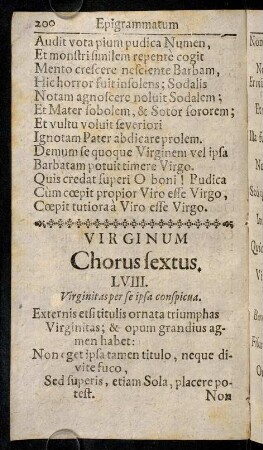 200 Epigrammatum
Audit vota pium pudica Numen,
Et monstri similem repente cogit
Mento crescere nesciente Barbam,
Hic horror fuit insolens; Sodalis
Notam agnoscere noluit Sodalem;
Et Mater sobolem, & Sotor sororem;
Et vultu voluit severiori
Ignotam Pater abdicare prolem.
Demum se quoque Virginem vel ipsa
Barbatam potuit timere Virgo.
Quis credat superi O boni! Pudica
Cùm cœpit propior Viro esse Virgo,
Cœpit tutior à Viro esse Virgo.
VIRGINUM
Chorus sextus.
LVIII.
Virginitas per se ipsa conspicua.
Externis etsi titulis ornata triumphas
Virginitas; & opum grandius ag-
men habet:
Non eget ipsa tamen titulo, neque di-
vite fuco,
Sed superis, etiam Sola, placere po-
test. Non